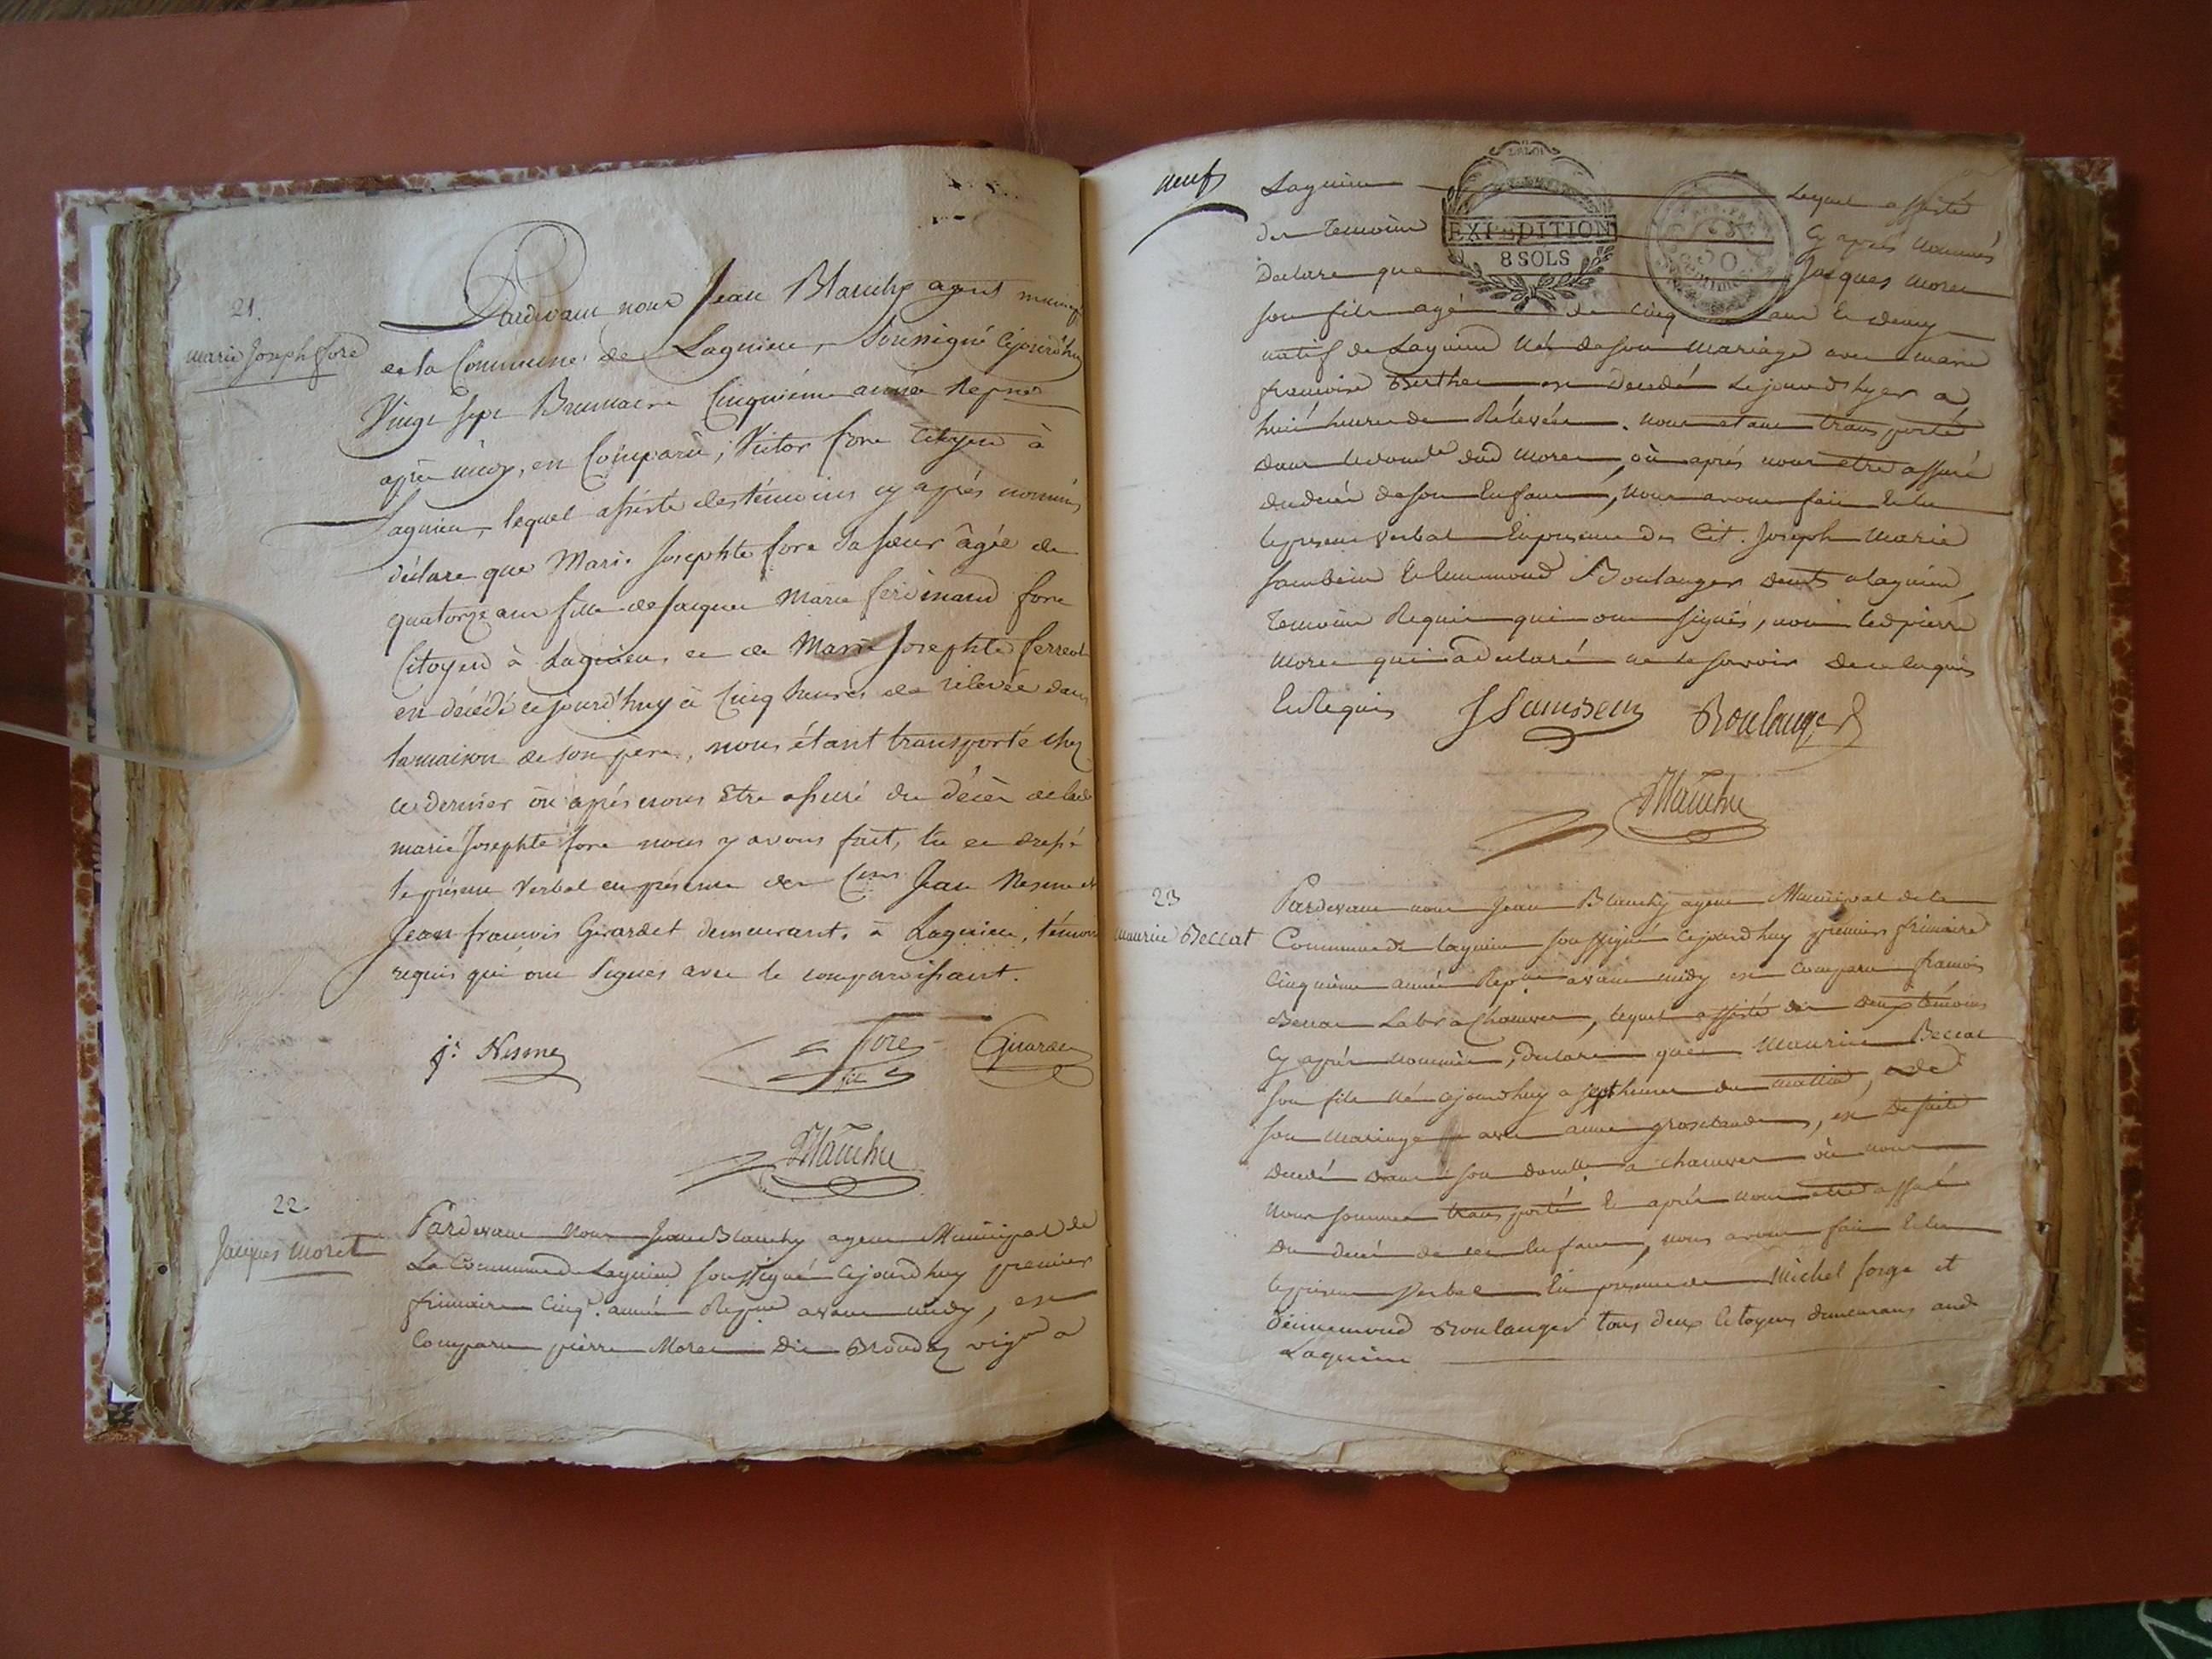 21.
marie Joseph fore
Pardevant nous Jean Blanchy agent municip.
de la Commune de Lagnieu, soussigné cejourd'huy
Vingt sept Brumaire Cinquième année Repne
après midy, est Comparu, Victor fore Citoyen à
Lagnieu, lequel assisté des témoins cy après nommés
déclare que Marie Josephte fore sa sœur âgée de
quatorze ans fille de Jacques Marie ferdinand fore
Citoyen à Lagnieu, et de Marie Josephte
est décédé cejourd'huy à Cinq heures de relevée dans
la maison de son père, nous étant transporté chez
ce dernier où après nous être assuré du décès de lad
marie Josephte fore nous y avons fait, lu et dressé
le présent Verbal en présence des Cens Jean Nesme et
Jean françois Girardet demeurants à Lagnieu, témoins
requis qui ont signés avec le comparoissant.
jn Nesme
fore
fils
Girardet
Blanchy
22.
Jacques moret
Pardevant Nous Jean Blanchy agent Municipal de
La Commune de Lagnieu soussigné cejourdhuy premier
frimaire cinqe. année Repne avant midy, est
Comparu pierre Moret dit vigon a
neuf
Lagnieu Lequel assisté
des Temoins Cy après nommés
Declare que Jacques moret
son fils agé de cinq ans et demy
natif de Lagnieu né de son mariage avec marie
françoise Berthet est decedé le jour d'hyer a
huit heures de Rélevée. nous etant transporté
dans le domlle dud moret, où après nous etre assuré
du decès de son Enfant, nous avons fait et lu
le present verbal En presence des Cit. Joseph Marie
Janssein et Ennemond Boulanger demts a Lagnieu,
Temoins Requis qui ont signés, non led pierre
moret qui a declaré ne le savoir de ce Enquis
et Requis
JJanssein
Boulanger
Blanchy
LA LOI
EXPEDITION
8 SOLS
23
maurice Beccat
Pardevant nous Jean Blanchy agent Municipal de la
Commune de Lagnieu soussigné cejourdhuy premier frimaire
Cinquième année Repne avant midy est comparu françois
Beccat Labr a Chauvet, lequel assisté des deux témoins
Cy après nommés, declare que maurice Beccat
son fils né cejourdhuy a sept heures du mattin, de
son mariage avec anne, est de suite
decedé dans son domlle a chauvet où nous
nous sommes transporté et après nous etre assuré
du decés de cet Enfant, nous avons fait et lu
le present Verbal En presence de michel forge et
dennemond Boulanger tous deux Citoyens demeurans aud
Lagnieu